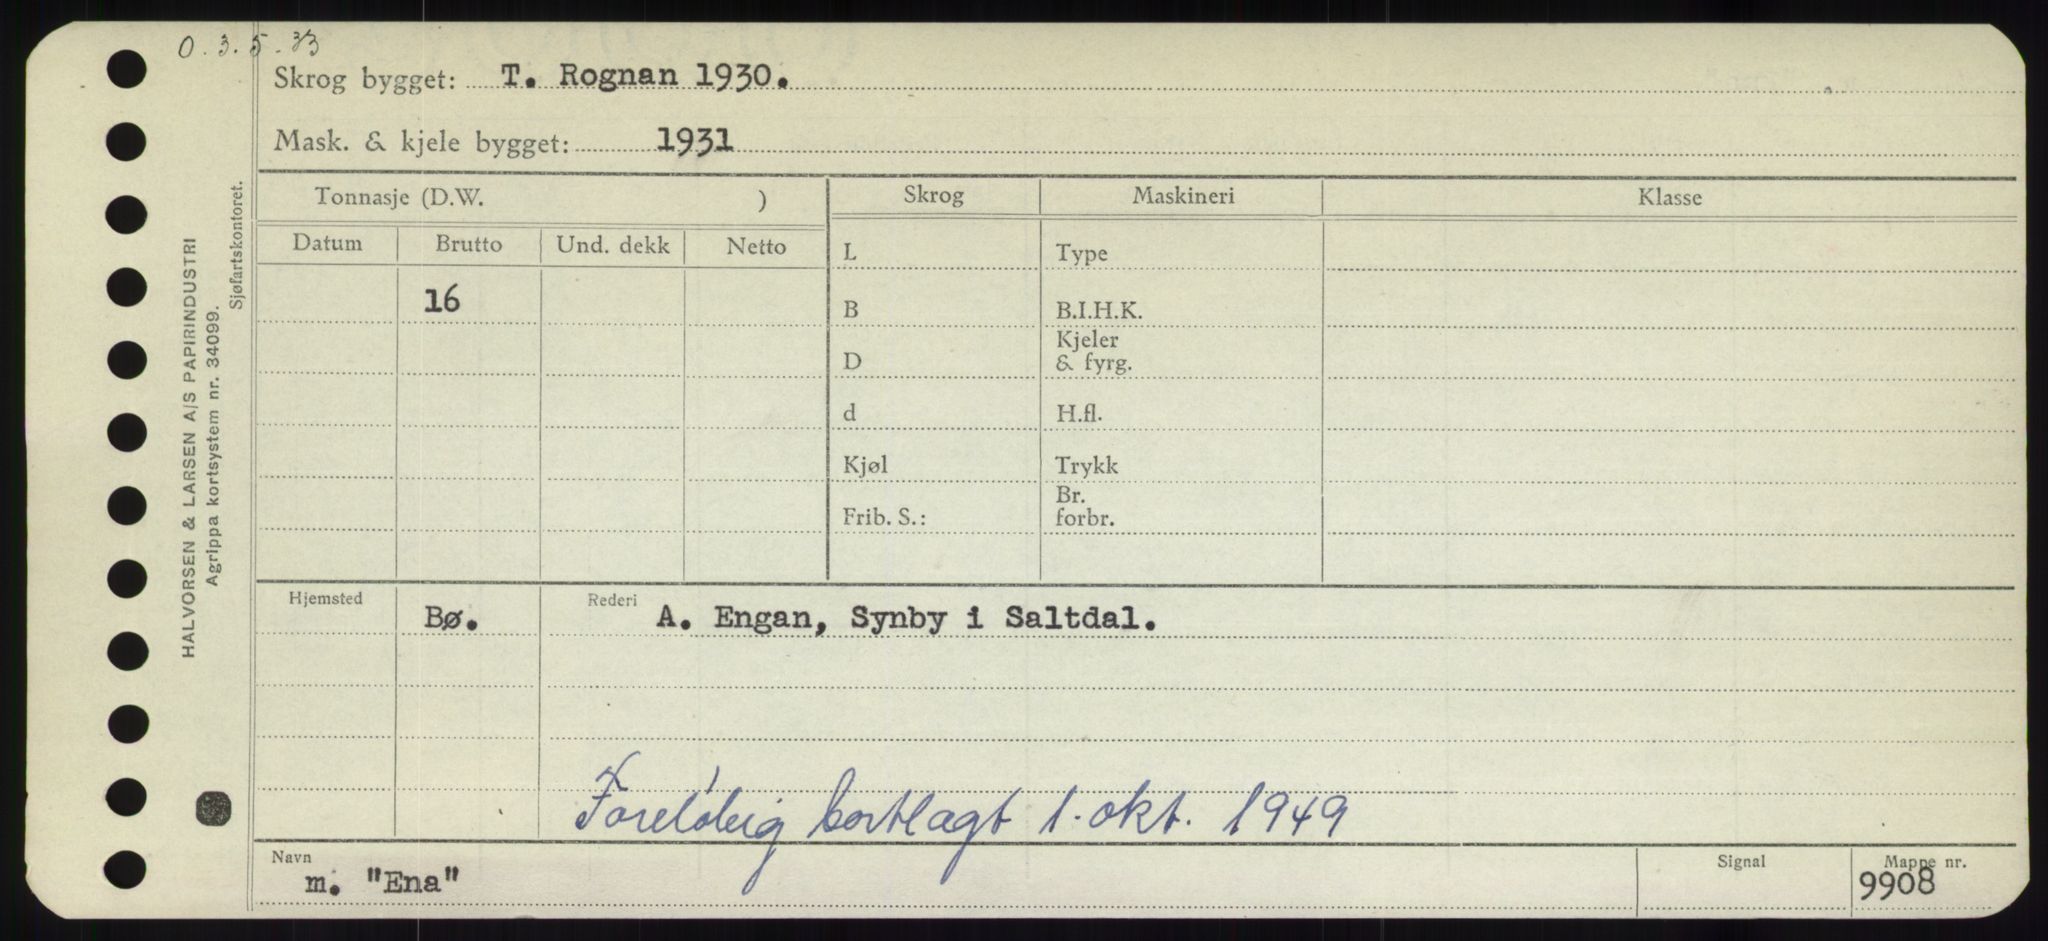 O. 3. 5. 33
Skrog bygget: T. Rognan 1930.
Mask. & kjele bygget: 1931
Tonnasje (D.W. )
Skrog Maskineri Klasse
Datum Brutto Und. dekk Netto
L Type
16
B B.I.H.K.
D Kjeler & fyrg.
d H.fl.
Kjøl Trykk
Frib. S.: Br. forbr.
Hjemsted Bø. Rederi A. Engan, Synby i Saltdal.
Foreløbig bortlagt 1. okt. 1949
Navn m. "Ena" Signal Mappe nr. 9908
HALVORSEN & LARSEN A/S PAPIRINDUSTRI
Agrippa kortsystem nr. 34099.
Sjøfartskontoret.